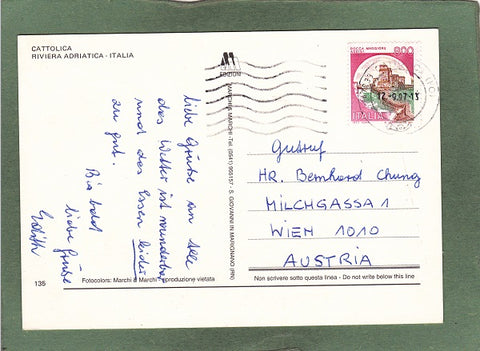 CATTOLICA
RIVIERA ADRIATICA - ITALIA
liebe Grüße an Alle
das Wetter ist wunderbar
und das Essen leider
zu gut.
Bis bald
liebe Grüße
Edith
135
Fotocolors: Marchi & Marchi - Riproduzione vietata
EDIZIONI
MARCHI & MARCHI - Tel. (0541) 955157 - S. GIOVANNI IN MARIGNANO (RN)
ROCCA MAGGIORE
800
ITALIA
12-9.97-13
HR. Bernhard Chung
MILCHGASSA 1
WIEN 1010
AUSTRIA
Non scrivere sotto questa linea - Do not write below this line